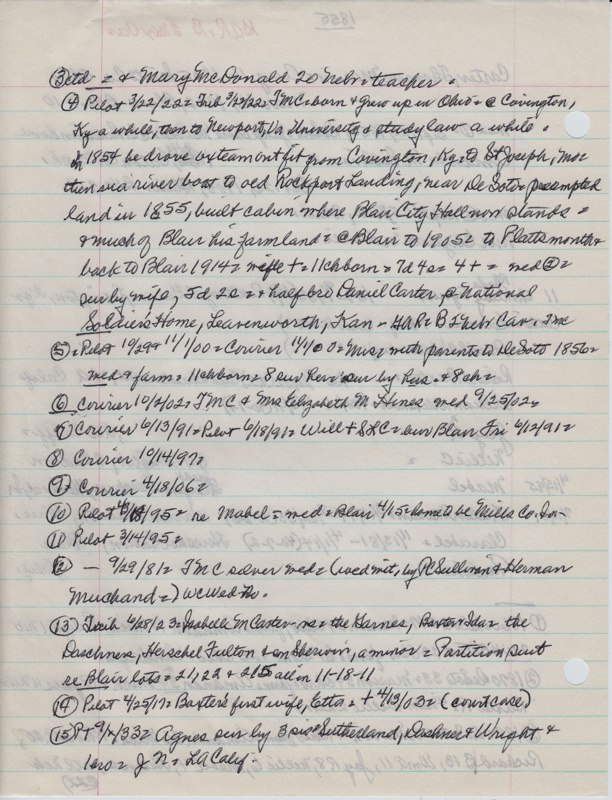 1855
③ctd = & Mary McDonald 20 Nebr = teacher =
④ Pilot 3/22/22 = Trib 3/22/22 = TMC = born & grew up in Ohio = @ Covington,
Ky a while, then to Newport, Va University & study law a while =
in 1854 he drove ox team outfit from Covington, Ky to St Joseph, Mo =
then via river boat to old Rockport Landing, near De Soto = preempted
land in 1855, built cabin where Blair City Hall now stands =
& much of Blair his farm land = @ Blair to 1905 = to Plattsmouth &
back to Blair 1914 = wife + = 11 ch born = 7d 4s = 4 + = med @ =
sur by wife, 5d 2s = & half bro Daniel Carter, @ National
Soldier's Home, Leavenworth, Kan - GAR = B 1 Nebr Cav. TMC
⑤ = Pilot 10/29 & 11/1/00 = Courier 11/1/00 = Mrs = with parents to De Soto 1856 =
med & farm = 11 ch born = 8 sur Here sur by hus. & 8 ch =
⑥ Courier 10/2/02 = TMC & Mrs Elizabeth M Hines wed 9/25/02 =
⑦ Courier 6/13/91 = Pilot 6/18/91 = Will & SLC = bur Blair Fri 6/12/91 =
⑧ Courier 10/14/97 =
⑨ Courier 4/18/06 =
⑩ Pilot 4/18/95 = re Mabel = wed = Blair 4/15 = home to be Mills Co Ia =
⑪ Pilot 3/14/95 =
⑫ — 9/29/81 = TMC silver wed = (wed wit, by PC Sullivan & Herman
Muchand =) WC Wed Mo.
⑬ Trib 6/28/23 = Isabella M Carter - vs = the Garnes, Baxter & Ida = the
Daschners, Herschel Fulton & son Sherwin, a minor = Partition suit
re Blair lots = 21, 22 & 215 all in 11-18-11
⑭ Pilot 4/25/17 = Baxter's first wife, Etta = + 4/13/03 = (court case)
⑮ PT 9/ /33 = Agnes sur by 3 sis = Sutherland, Daschner & Wright &
1 bro = J N = LA Calif.